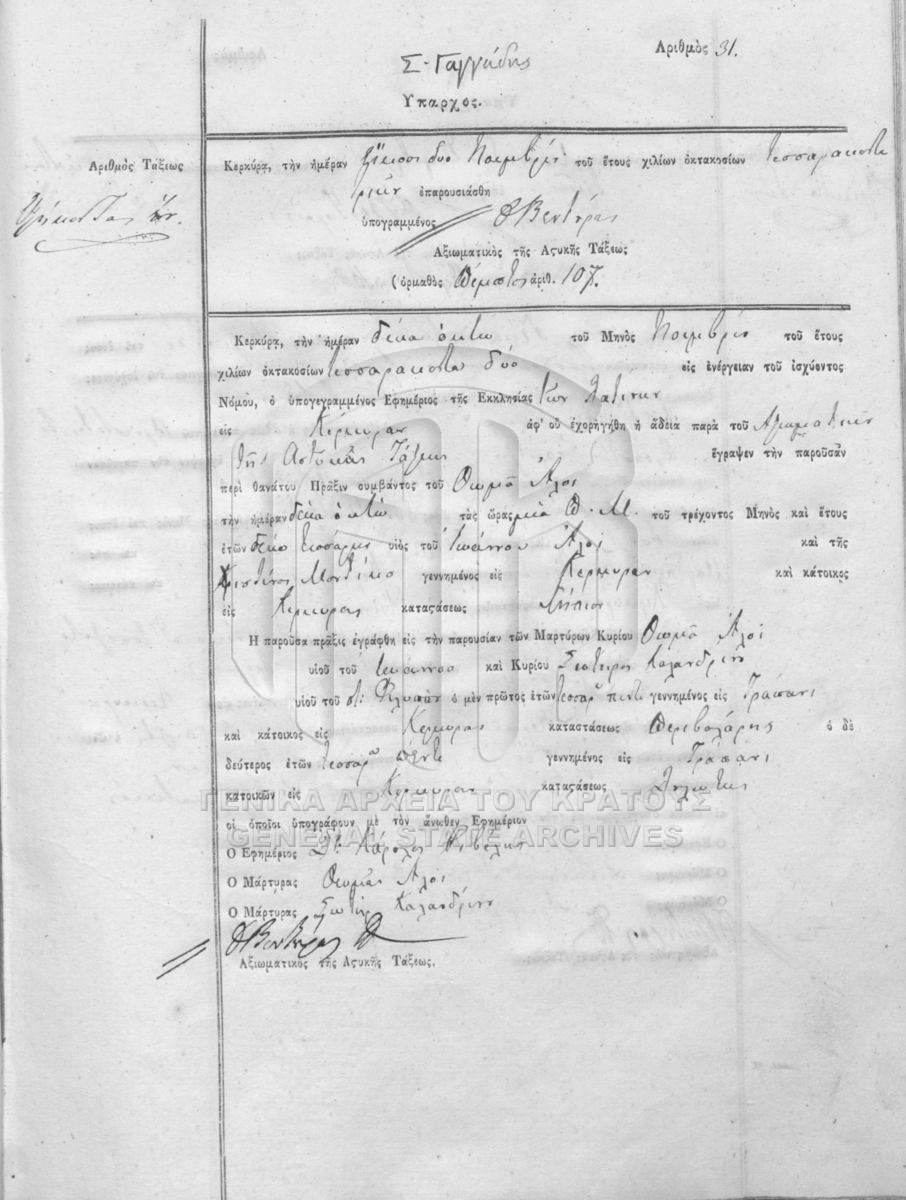 Ἀριθμὸς 31.
Σ. Γαγγάδης
Ὕπαρχος.
Ἀριθμὸς Τάξεως
Κερκύρᾳ, τὴν ἡμέραν εἴκοσι δύο Νοεμβρίου τοῦ ἔτους χιλίων ὀκτακοσίων τεσσαράκοντα
ἐπαρουσιάσθη
ὑπογραμμένος Βεντύρας
Ἀξιωματικὸς τῆς Ἀςυκῆς Τάξεως
(ὁρμαθὸς πέμπτος ἀριθ. 107.
Κερκύρᾳ, τὴν ἡμέραν δέκα ὀκτὼ τοῦ Μηνὸς Νοεμβρίου τοῦ ἔτους
χιλίων ὀκτακοσίων τεσσαράκοντα δύο εἰς ἐνέργειαν τοῦ ἰσχύοντος
Νόμου, ὁ ὑπογεγραμμένος Ἐφημέριος τῆς Ἐκκλησίας τῶν Λατίνων
εἰς Κέρκυραν ἀφ' οὗ ἐχορηγήθη ἡ ἄδεια παρὰ τοῦ Ἀξιωματικοῦ
τῆς Ἀστυκῆς Τάξεως ἔγραψεν τὴν παροῦσαν
περὶ θανάτου Πρᾶξιν συμβάντος τοῦ Θωμᾶ Ἀλοὶ
τὴν ἡμέραν δέκα ὀκτὼ τὰς ὥρας μία Π. Μ. τοῦ τρέχοντος Μηνὸς καὶ ἔτους
ἐτῶν δέκα τέσσαρες υἱὸς τοῦ Ἰωάννου Ἀλοὶ καὶ τῆς
γεννημένος εἰς Κέρκυραν καὶ κάτοικος
εἰς Κέρκυρας καταςάσεως Νήπιον
Ἡ παροῦσα πρᾶξις ἐγράφθη εἰς τὴν παρουσίαν τῶν Μαρτύρων Κυρίου Θωμᾶ Ἀλοὶ
υἱοῦ τοῦ Ἰωάννου καὶ Κυρίου Σωτείρης Καλανδρίνο
υἱοῦ τοῦ π. Φιλίππου ὁ μὲν πρῶτος ἐτῶν τεσσαρ πέντε γεννημένος εἰς Τράπανι
καὶ κάτοικος εἰς Κερκύρας καταστάσεως Περιβολάρης ὁ δὲ
δεύτερος ἐτῶν τεσσαρ πέντε γεννημένος εἰς Τράπανι
κατοικῶν εἰς Κέρκυραν καταςάσεως
οἱ ὁποῖοι ὑπογράφουν μὲ τὸν ἄνωθεν Ἐφημέριον
Ὁ Ἐφημέριος Κάρολος
Ὁ Μάρτυρας Θωμᾶς Ἀλοὶ
Ὁ Μάρτυρας Σωτίρ Καλανδρίνο
Βεντύρας
Ἀξιωματικὸς τῆς Ἀςυκῆς Τάξεως.
ΓΕΝΙΚΑ ΑΡΧΕΙΑ ΤΟΥ ΚΡΑΤΟΥΣ
GENERAL STATE ARCHIVES